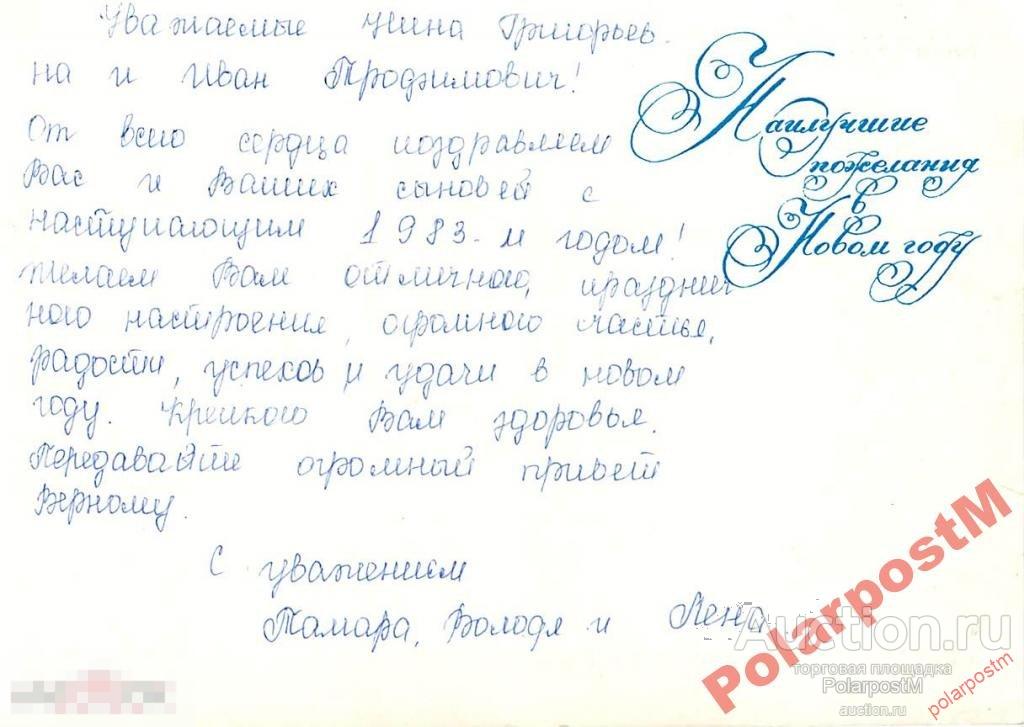 Уважаемые Нина Григорьев-
на и Иван Трофимович!
От всего сердца поздравляем
Вас и Ваших сыновей с
наступающим 1983-м годом!
Желаем Вам отличного, празднич
ного настроения, огромного счастья,
радости, успехов и удачи в новом
году. Крепкого Вам здоровья.
Передавайте огромный привет
Верному.
С уважением
Тамара, Володя и Лена
Наилучшие
пожелания
в
Новом году
PolarpostM
Auction.ru
торговая площадка
PolarpostM
auction.ru
polarpostm